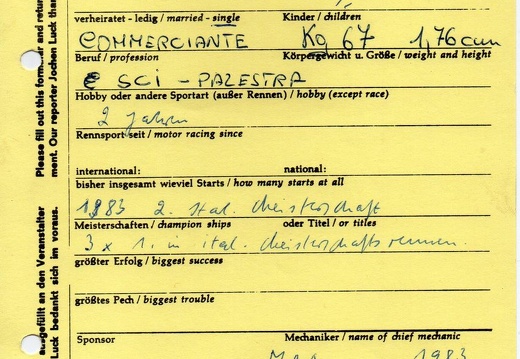 verheiratet - ledig / married - single Kinder / children
COMMERCIANTE Kg 67 1,76 cm
Beruf / profession Körpergewicht u. Größe / weight and height
SCI - PALESTRA
Hobby oder andere Sportart (außer Rennen) / hobby (except race)
2 Jahren
Rennsport seit / motor racing since
international: national:
bisher insgesamt wieviel Starts / how many starts at all
1983 2. ital. Meisterschaft
Meisterschaften / champion ships oder Titel / or titles
3 x 1. in ital. Meisterschaftsrennen.
größter Erfolg / biggest success
größtes Pech / biggest trouble
Sponsor Mechaniker / name of chief mechanic
1983
Please fill out this form
ment. Our reporter Jochen Luck
ausgefüllt an den Veranstalter
Luck bedankt sich im voraus.